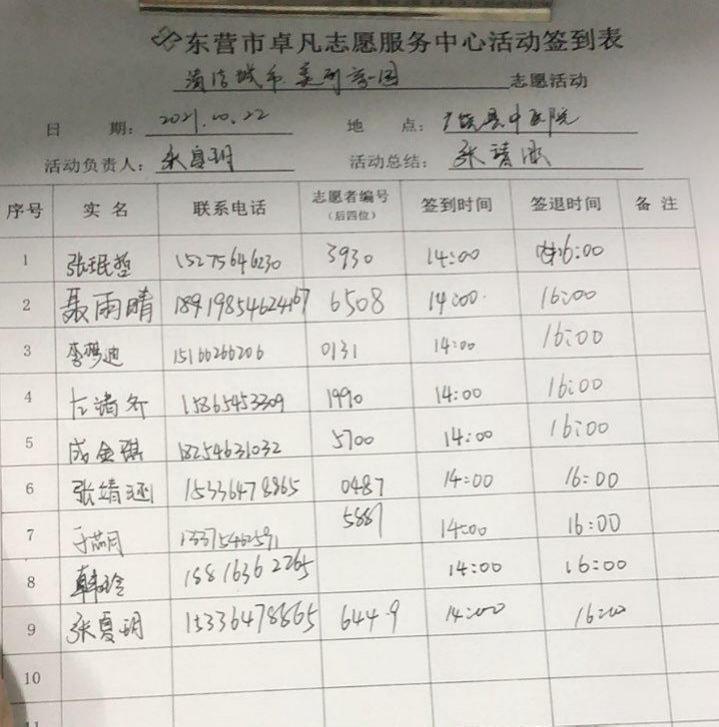 东营市卓凡志愿服务中心活动签到表
清洁城市 美丽家园 志愿活动
日 期: 2021.10.22 地 点: 广饶县中医院
活动负责人: 张夏玥 活动总结: 张靖涵
序号 实名 联系电话 志愿者编号（后四位） 签到时间 签退时间 备注
1 张珉哲 15275646230 3930 14:00 16:00
2 聂雨晴 6508 14:00 16:00
3 15166266206 0131 14:00 16:00
4 15865453309 1990 14:00 16:00
5 成金琪 18254631032 5700 14:00 16:00
6 张靖涵 15336478865 0487 14:00 16:00
7 13375462591 5887 14:00 16:00
8 韩玲 15816362265 14:00 16:00
9 张夏玥 15336478865 6449 14:00 16:00
10
11